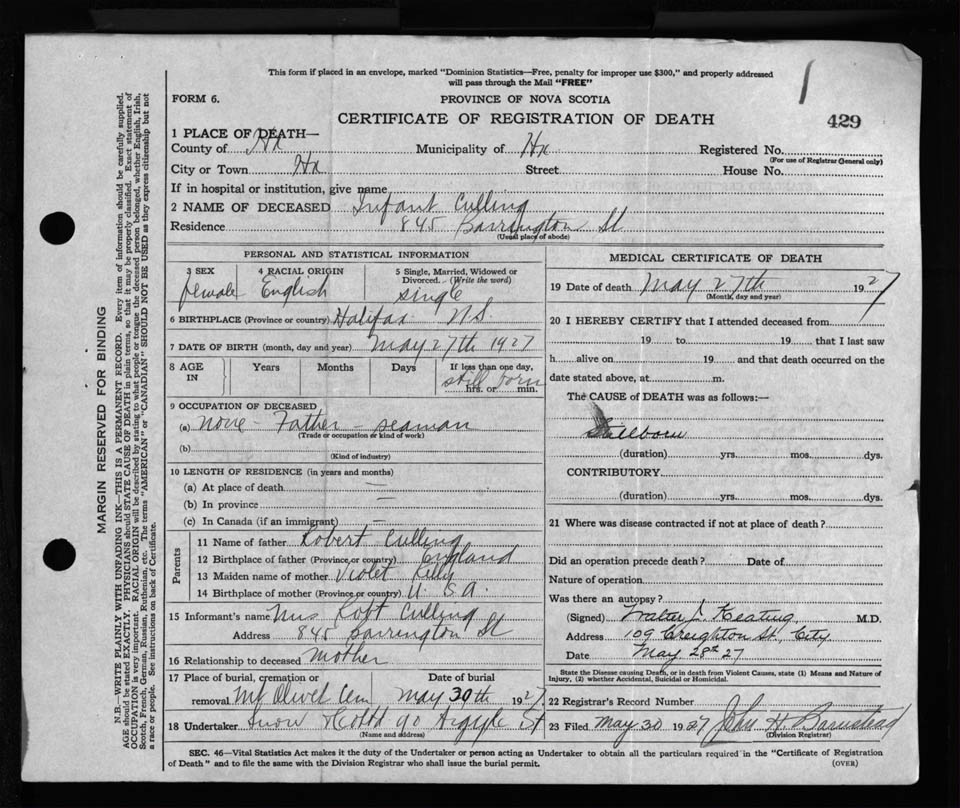 This form if placed in an envelope, marked "Dominion Statistics—Free, penalty for improper use $300," and properly addressed
will pass through the Mail "FREE"
1
FORM 6.
PROVINCE OF NOVA SCOTIA
CERTIFICATE OF REGISTRATION OF DEATH
429
1 PLACE OF DEATH—
County of Hx Municipality of Hx Registered No.
(For use of Registrar General only)
City or Town Hx Street House No.
If in hospital or institution, give name
2 NAME OF DECEASED Infant Culling
Residence 845 Barrington St
(Usual place of abode)
PERSONAL AND STATISTICAL INFORMATION
3 SEX 4 RACIAL ORIGIN 5 Single, Married, Widowed or
Divorced. (Write the word)
female English single
6 BIRTHPLACE (Province or country) Halifax N.S.
7 DATE OF BIRTH (month, day and year) May 27th 1927
8 AGE IN Years Months Days If less than one day,
still born
hrs. or min.
9 OCCUPATION OF DECEASED
(a) none - Father - seaman
(Trade or occupation or kind of work)
(b)
(Kind of industry)
10 LENGTH OF RESIDENCE (in years and months)
(a) At place of death —
(b) In province —
(c) In Canada (if an immigrant) —
Parents
11 Name of father Robert Culling
12 Birthplace of father (Province or country) England
13 Maiden name of mother Violet Kelly
14 Birthplace of mother (Province or country) U.S.A.
15 Informant's name Mrs Robt Culling
Address 845 Barrington St
16 Relationship to deceased mother
17 Place of burial, cremation or Date of burial
removal Mt Olivet Cem May 30th 1927
18 Undertaker Snow & Co Ltd 90 Argyle St
(Name and address)
MEDICAL CERTIFICATE OF DEATH
19 Date of death May 27th 1927
(Month, day and year)
20 I HEREBY CERTIFY that I attended deceased from
19 to 19 that I last saw
h alive on 19 and that death occurred on the
date stated above, at m.
The CAUSE of DEATH was as follows:—
Stillborn
(duration) yrs. mos. dys.
CONTRIBUTORY
(duration) yrs. mos. dys.
21 Where was disease contracted if not at place of death?
Did an operation precede death? Date of
Nature of operation
Was there an autopsy?
(Signed) Walter J. Keating M.D.
Address 109 Creighton St, City
Date May 28th 27
State the Disease causing Death, or in death from Violent Causes, state (1) Means and Nature of
Injury, (2) whether Accidental, Suicidal or Homicidal.
22 Registrar's Record Number
23 Filed May 30 1927 John H. Barnstead
(Division Registrar)
SEC. 46—Vital Statistics Act makes it the duty of the Undertaker or person acting as Undertaker to obtain all the particulars required in the "Certificate of Registration
of Death" and to file the same with the Division Registrar who shall issue the burial permit.
(OVER)
MARGIN RESERVED FOR BINDING
N.B.—WRITE PLAINLY WITH UNFADING INK—THIS IS A PERMANENT RECORD. Every item of information should be carefully supplied.
AGE should be stated EXACTLY. PHYSICIANS should STATE CAUSE OF DEATH in plain terms, so that it may be properly classified. Exact statement of
OCCUPATION is very important. RACIAL ORIGIN will be described by stating to what people or tongue the deceased person belonged, whether English, Irish,
Scotch, French, German, Russian, Ruthenian, etc. The terms "AMERICAN" or "CANADIAN" SHOULD NOT BE USED as they express citizenship but not
a race or people. See instructions on back of Certificate.